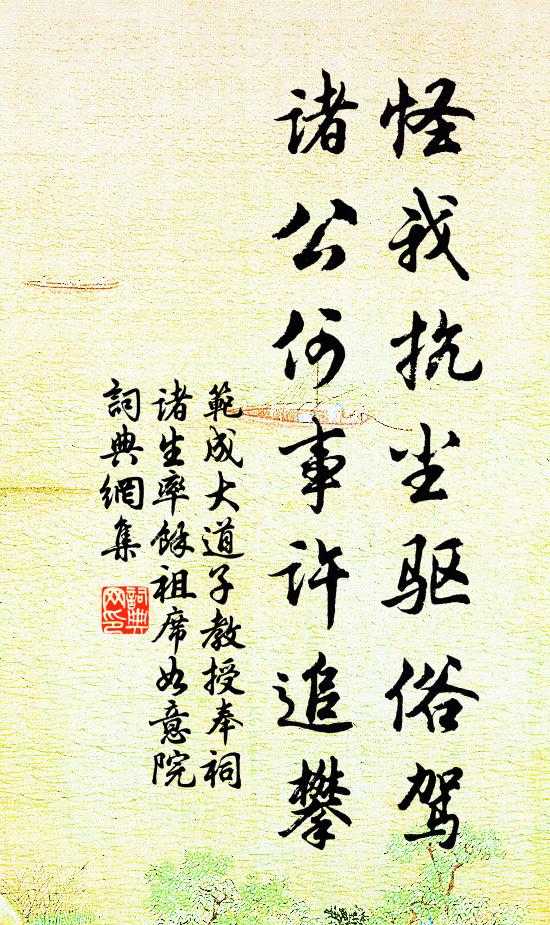 怪我抗尘驱俗驾
诸公何事许追攀
範成大道子教授奉祠
诸生率餘祖席如意院
詞典網集
詞典
网印